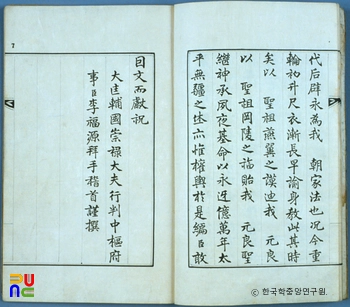 代后辟永為我 朝家法也况今重
輪初升尺衣漸長早諭身教此其時
矣以 聖祖燕翼之謨迪我 元良
以 聖祖岡陵之福貽我 元良聖
繼神承夙夜基命以永迓億萬年太
平無疆之休亦惟權輿於是編臣敢
因文而獻祝
大匡輔國崇祿大夫行判中樞府
事臣李福源拜手稽首謹撰
7
ⓒ 한국학중앙연구원